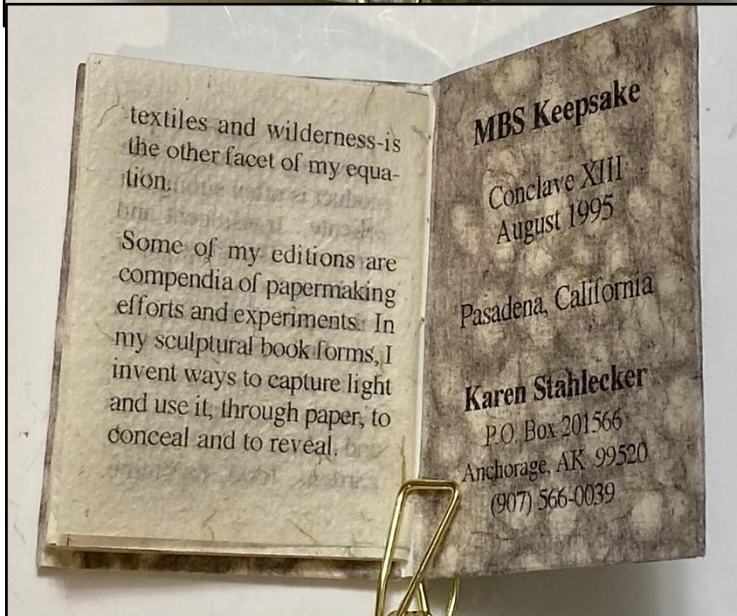 textiles and wilderness-is
the other facet of my equa-
tion.
Some of my editions are
compendia of papermaking
efforts and experiments. In
my sculptural book forms, I
invent ways to capture light
and use it, through paper, to
conceal and to reveal.
MBS Keepsake
Conclave XIII
August 1995
Pasadena, California
Karen Stahlecker
P.O. Box 201566
Anchorage, AK 99520
(907) 566-0039